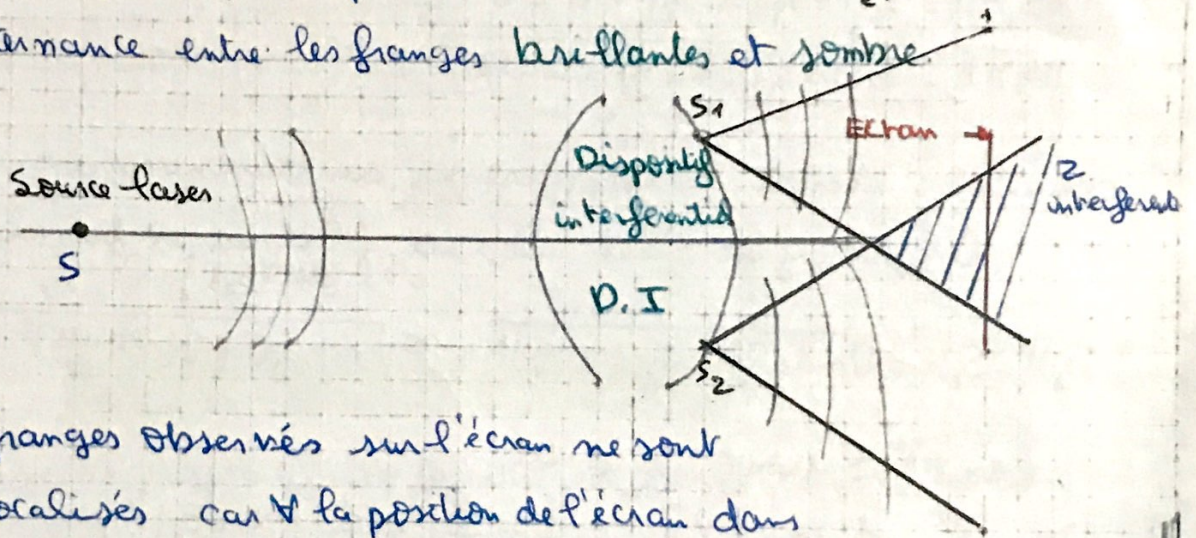 ernance entre les franges brillantes et sombre.
S1
Ecran
Source laser
Dispositif
interferentiel
2
interferent
S
D.I
S2
ranges observés sur l'écran ne sont
ocalisés car ∀ la position de l'écran dans